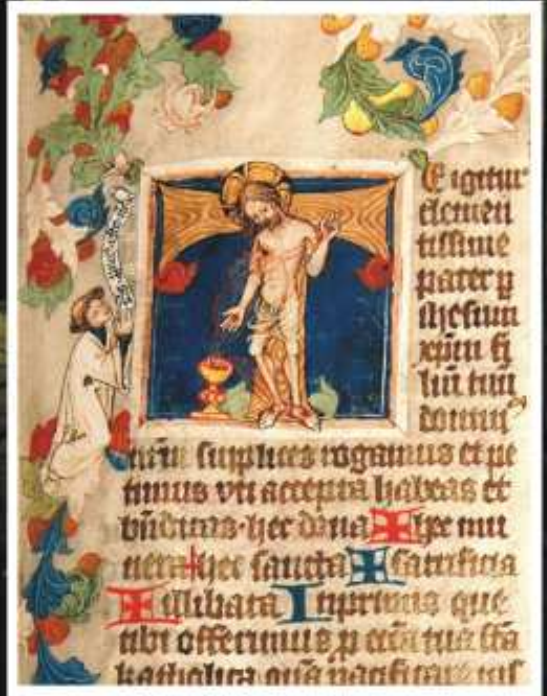 E igitur
clemen
tissime
pater p
ihesum
xpm fi
liu tuu
domin
nrm supplices rogamus et pe
timus vti accepta habeas et
bndicas hec dona hec mu
nera hec sancta sacrificia
illibata Inprimis que
tibi offerimus p eccia tua sca
katholica qua pacificare